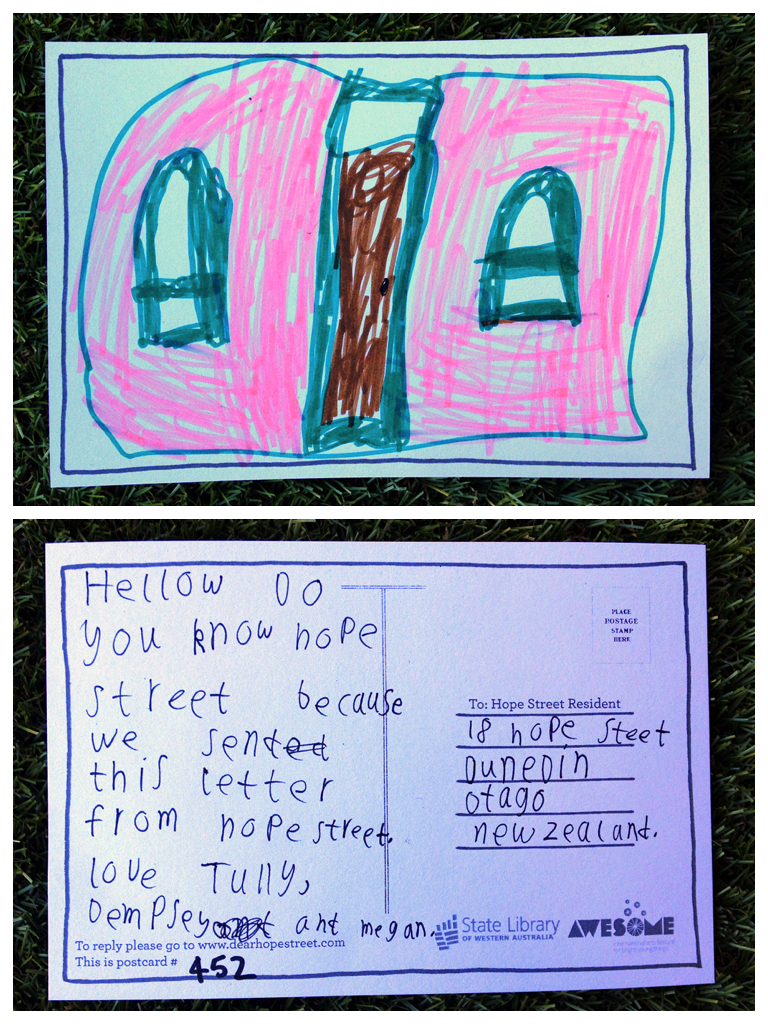 Hellow Do
you know hope
street because
we sented
this letter
from hope street.
love Tully,
Dempsey and megan.
To reply please go to www.dearhopestreet.com
This is postcard # 452
PLACE
POSTAGE
STAMP
HERE
To: Hope Street Resident
18 hope Steet
Dunedin
otago
new zealand.
State Library
OF WESTERN AUSTRALIA
AWESOME